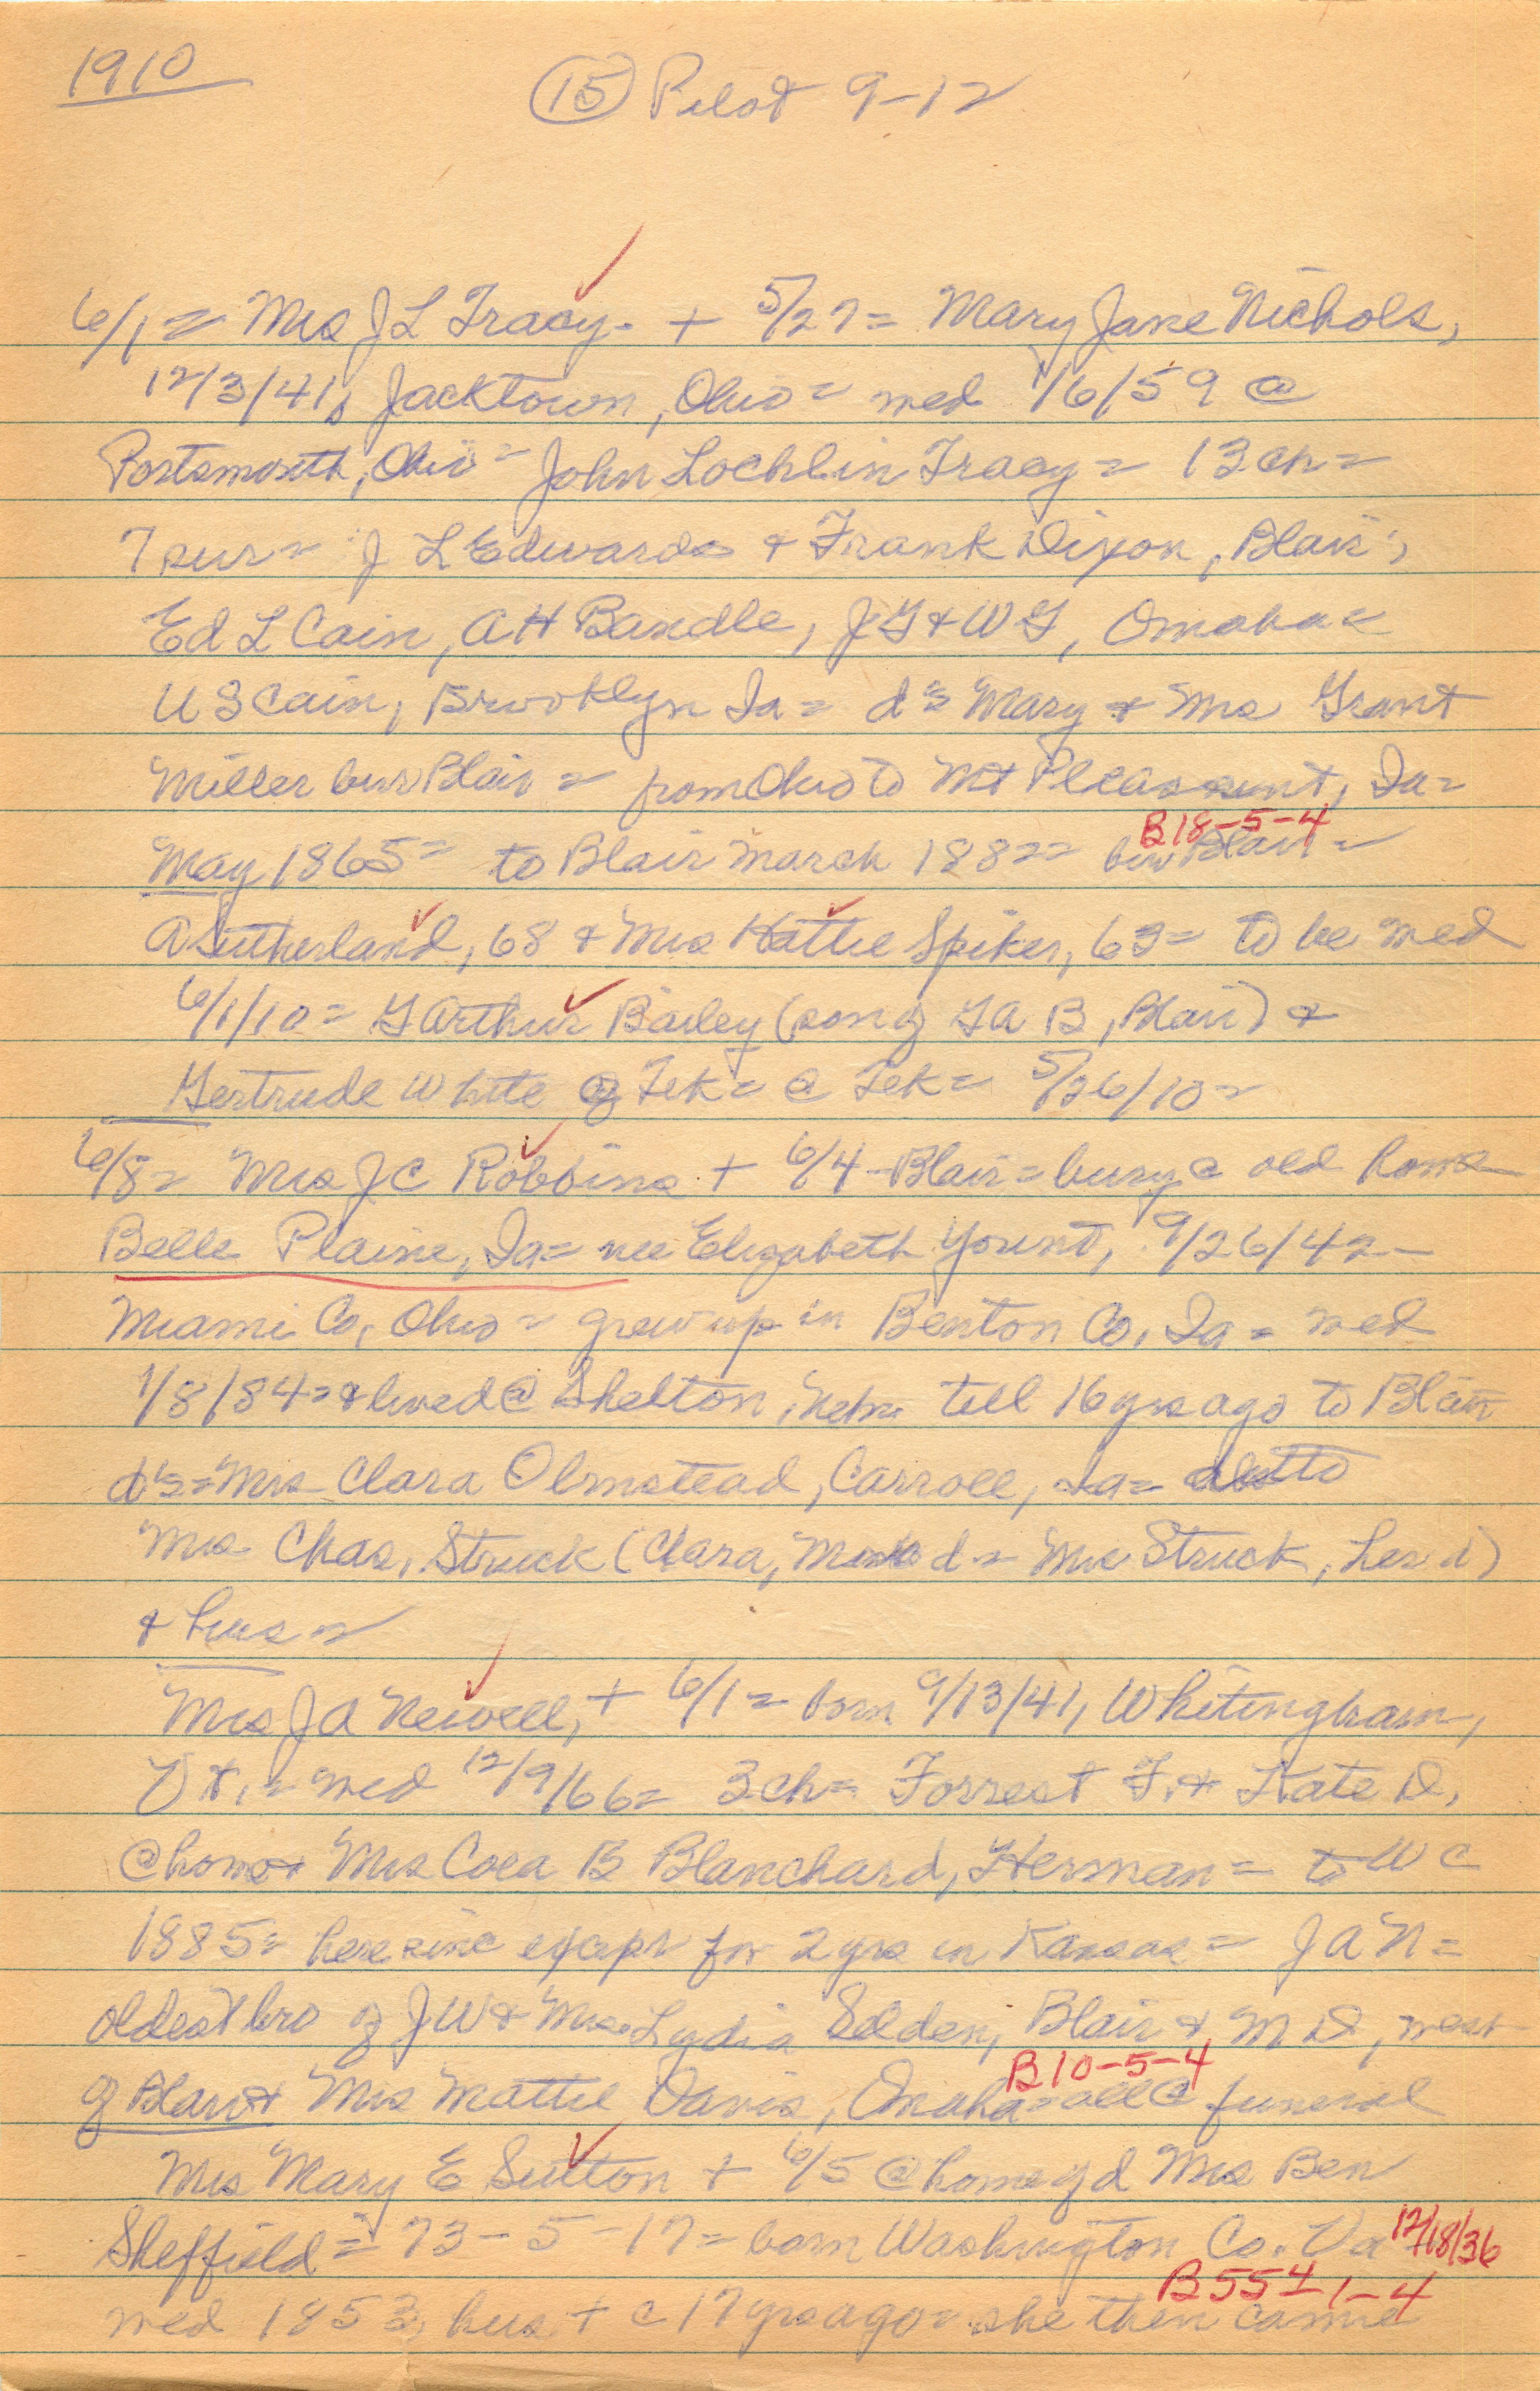 1910
(15) Pilot 9-12
6/1 = Mrs J L Tracy. + 5/27 = Mary Jane Nichols,
12/3/41, Jacktown, Ohio = wed 1/6/59 @
Portsmouth, Ohio = John Lochlin Tracy = 13 ch =
7 sur = J L Edwards & Frank Dixon, Blair,
Ed L Cain, A H Bandle, J G & W G, Omaha =
U S Cain, Brooklyn Ia = d's Mary & Mrs Grant
Miller bur Blair = from Ohio to Mt Pleasant, Ia =
B18-5-4
May 1865 = to Blair March 1882 = bur Blair =
A Sutherland, 68 & Mrs Hattie Spiker, 63 = to be wed
6/1/10 = G Arthur Bailey (son of G A B, Blair) &
Gertrude White of Tek = @ Tek = 5/26/10 =
6/8 = Mrs J C Robbins + 6/4 - Blair = bury @ old home
Belle Plaine, Ia = nee Elizabeth Yount, 9/26/42 -
Miami Co, Ohio = grew up in Benton Co, Ia = wed
1/8/84 = & lived @ Shelton, Nebr till 16 yrs ago to Blair
d's = Mrs Clara Olmstead, Carroll, Ia =
Mrs Chas. Struck (Clara, d = Mrs Struck, her d)
& hus =
Mrs J A Newell, + 6/1 = born 9/13/41, Whitingham,
Vt. = wed 12/9/66 = 3 ch = Forrest F. & Kate D,
@ home & Mrs Cora B Blanchard, Herman = to W C
1885 = here since except for 2 yrs in Kansas = J A N =
oldest bro of J W & Mrs. Lydia Selden, Blair & M D, west
B10-5-4
of Blair & Mrs Mattie Davis, Omaha = all @ funeral
Mrs Mary E Sutton + 6/5 @ home of d Mrs Ben
Sheffield = 73-5-17 = born Washington Co. Va 12/18/36
B554-1-4
wed 1853, hus + c 17 yrs ago = she then came